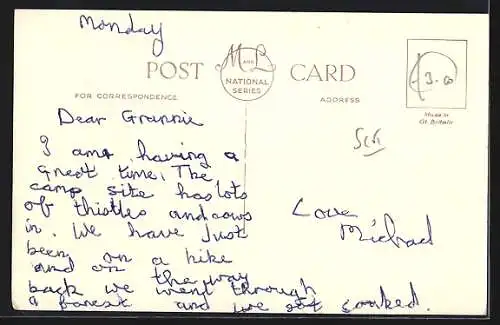 Monday
POST
M AND L
NATIONAL
SERIES
CARD
FOR CORRESPONDENCE
ADDRESS
3-00
Made in
Gt. Britain
Dear Grannie
I am having a
great time. The
camp site has lots
of thistles and cows
in. We have Just
been on a hike
and on the way
back we went through
a forest and we got soaked.
Love
Michael